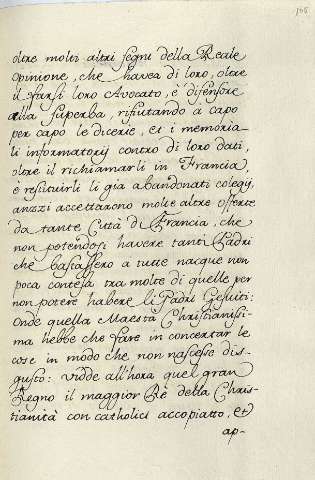 168
oltre molti altri segni della Reale
opinione, che havea di loro, oltre
il farsi loro Avocato, e difensore
alla superba, rifiutando a capo
per capo le dicerie, et i memoria-
li informatorij contro di loro dati,
oltre il richiamarli in Francia,
e restituirli li già abandonati colegij,
anzzi accettarono molte altre offerte
da tante Città di Francia, che
non potendosi havere tanti Padri
che bastassero a tutte nacque non
poca contesa tra molte di quelle per
non potere habere li Padri Gesuiti:
onde quella Maestà Christianissi-
ma hebbe che fare in concertar le
cose in modo che non nascesse dis-
gusto: vidde all'hora quel gran
Regno il maggior Rè della Chris-
tianità con catholici accopiatto, et
ap-